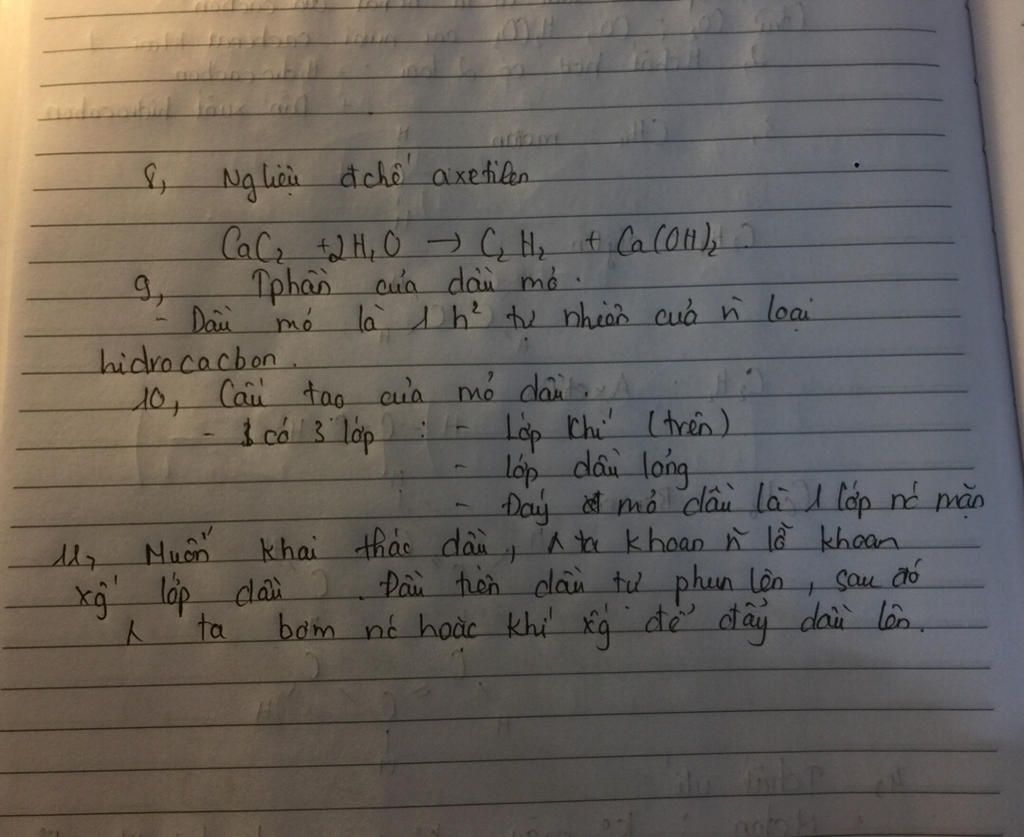 8, Ng liệu đchế axetilen
CaC₂ + 2H₂O → C₂H₂ + Ca(OH)₂
9, Tphần của dầu mỏ.
- Dầu mỏ là 1 h² tự nhiên của ñ loại
hidrocacbon.
10, Cấu tạo của mỏ dầu.
- có 3 lớp : - Lớp khí (trên)
- lớp dầu lỏng
- Đáy mỏ dầu là 1 lớp nc mặn
11, Muốn khai thác dầu, ʌ ta khoan ñ lỗ khoan
xg lớp dầu. Đầu tiên dầu tự phun lên, sau đó
ʌ ta bơm nc hoặc khí xg để đẩy dầu lên.